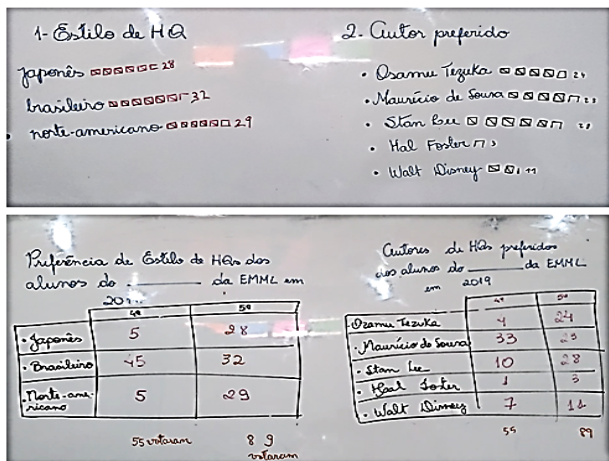 1- Estilo de HQ
Japonês 28
brasileiro 32
norte-americano 29
2. Autor preferido
• Osamu Tezuka 24
• Maurício de Sousa 23
• Stan Lee 28
• Hal Foster 3
• Walt Disney 11
Preferência de Estilo de HQs dos
alunos do ________ da EMML em
4º 5º
• Japonês 5 28
• Brasileiro 45 32
• Norte-ame-
ricano 5 29
55 votaram 89
votaram
Autores de HQs preferidos
dos alunos do ________ da EMML
em 2019
4º 5º
• Ozamu Tezuka 4 24
• Maurício de Sousa 33 23
• Stan Lee 10 28
• Hal Foster 1 3
• Walt Disney 7 11
55 89